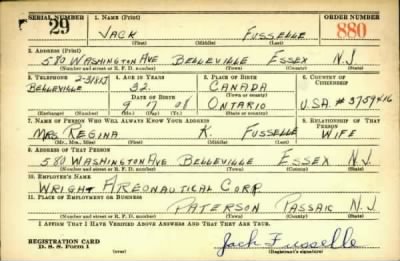 SERIAL NUMBER 1. NAME (Print) ORDER NUMBER
29 JACK FUSSELLE 880
(First) (Middle) (Last)
2. ADDRESS (Print)
580 WASHINGTON AVE BELLEVILLE ESSEX N.J.
(Number and street or R. F. D. number) (Town) (County) (State)
3. TELEPHONE 4. AGE IN YEARS 5. PLACE OF BIRTH 6. COUNTRY OF CITIZENSHIP
BELLEVILLE 32 CANADA
(Town or county)
9 7 08 ONTARIO U.S.A. #3759416
(Exchange) (Number) (Mo.) (Day) (Yr.) (State or country)
7. NAME OF PERSON WHO WILL ALWAYS KNOW YOUR ADDRESS 8. RELATIONSHIP OF THAT PERSON
MRS REGINA K. FUSSELLE WIFE
(Mr., Mrs., Miss) (First) (Middle) (Last)
9. ADDRESS OF THAT PERSON
580 WASHINGTON AVE BELLEVILLE ESSEX N.J.
(Number and street or R. F. D. number) (Town) (County) (State)
10. EMPLOYER'S NAME
WRIGHT AREONAUTICAL CORP
11. PLACE OF EMPLOYMENT OR BUSINESS
PATERSON PASSAIC N.J.
(Number and street or R. F. D. number) (Town) (County) (State)
I AFFIRM THAT I HAVE VERIFIED ABOVE ANSWERS AND THAT THEY ARE TRUE.
REGISTRATION CARD
D. S. S. Form 1 (over) Jack Fusselle
(Registrant's signature)